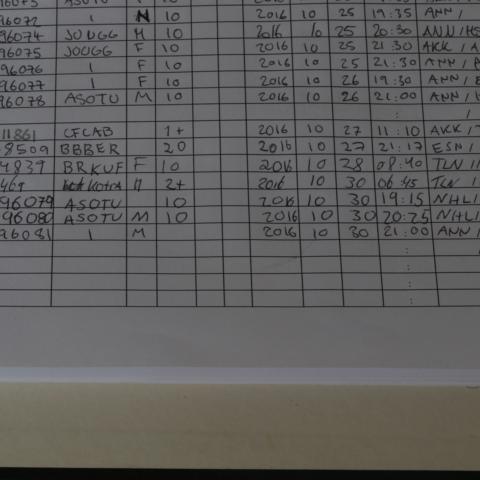 96072 1 N 10 2016 10 25 19:35 ANN/
96074 JOUGG M 10 2016 10 25 20:30 ANN/HS
96075 JOUGG F 10 2016 10 25 21:30 AKK/A
96076 1 F 10 2016 10 25 21:30 ANN/
96077 1 F 10 2016 10 26 19:30 ANN/
96078 ASOTU M 10 2016 10 26 21:00 ANN/
11861 CFCAB 1+ 2016 10 27 11:10 AKK/
8509 BBBER 20 2016 10 27 21:17 ESN/
4839 BRKUF F 10 2016 10 28 08:40 TLN/
2+ 2016 10 30 06:45 TLN/
96079 ASOTU 10 2016 10 30 19:15 NHL/
96080 ASOTU M 10 2016 10 30 20:25 NHL/
96081 1 M 2016 10 30 21:00 ANN/